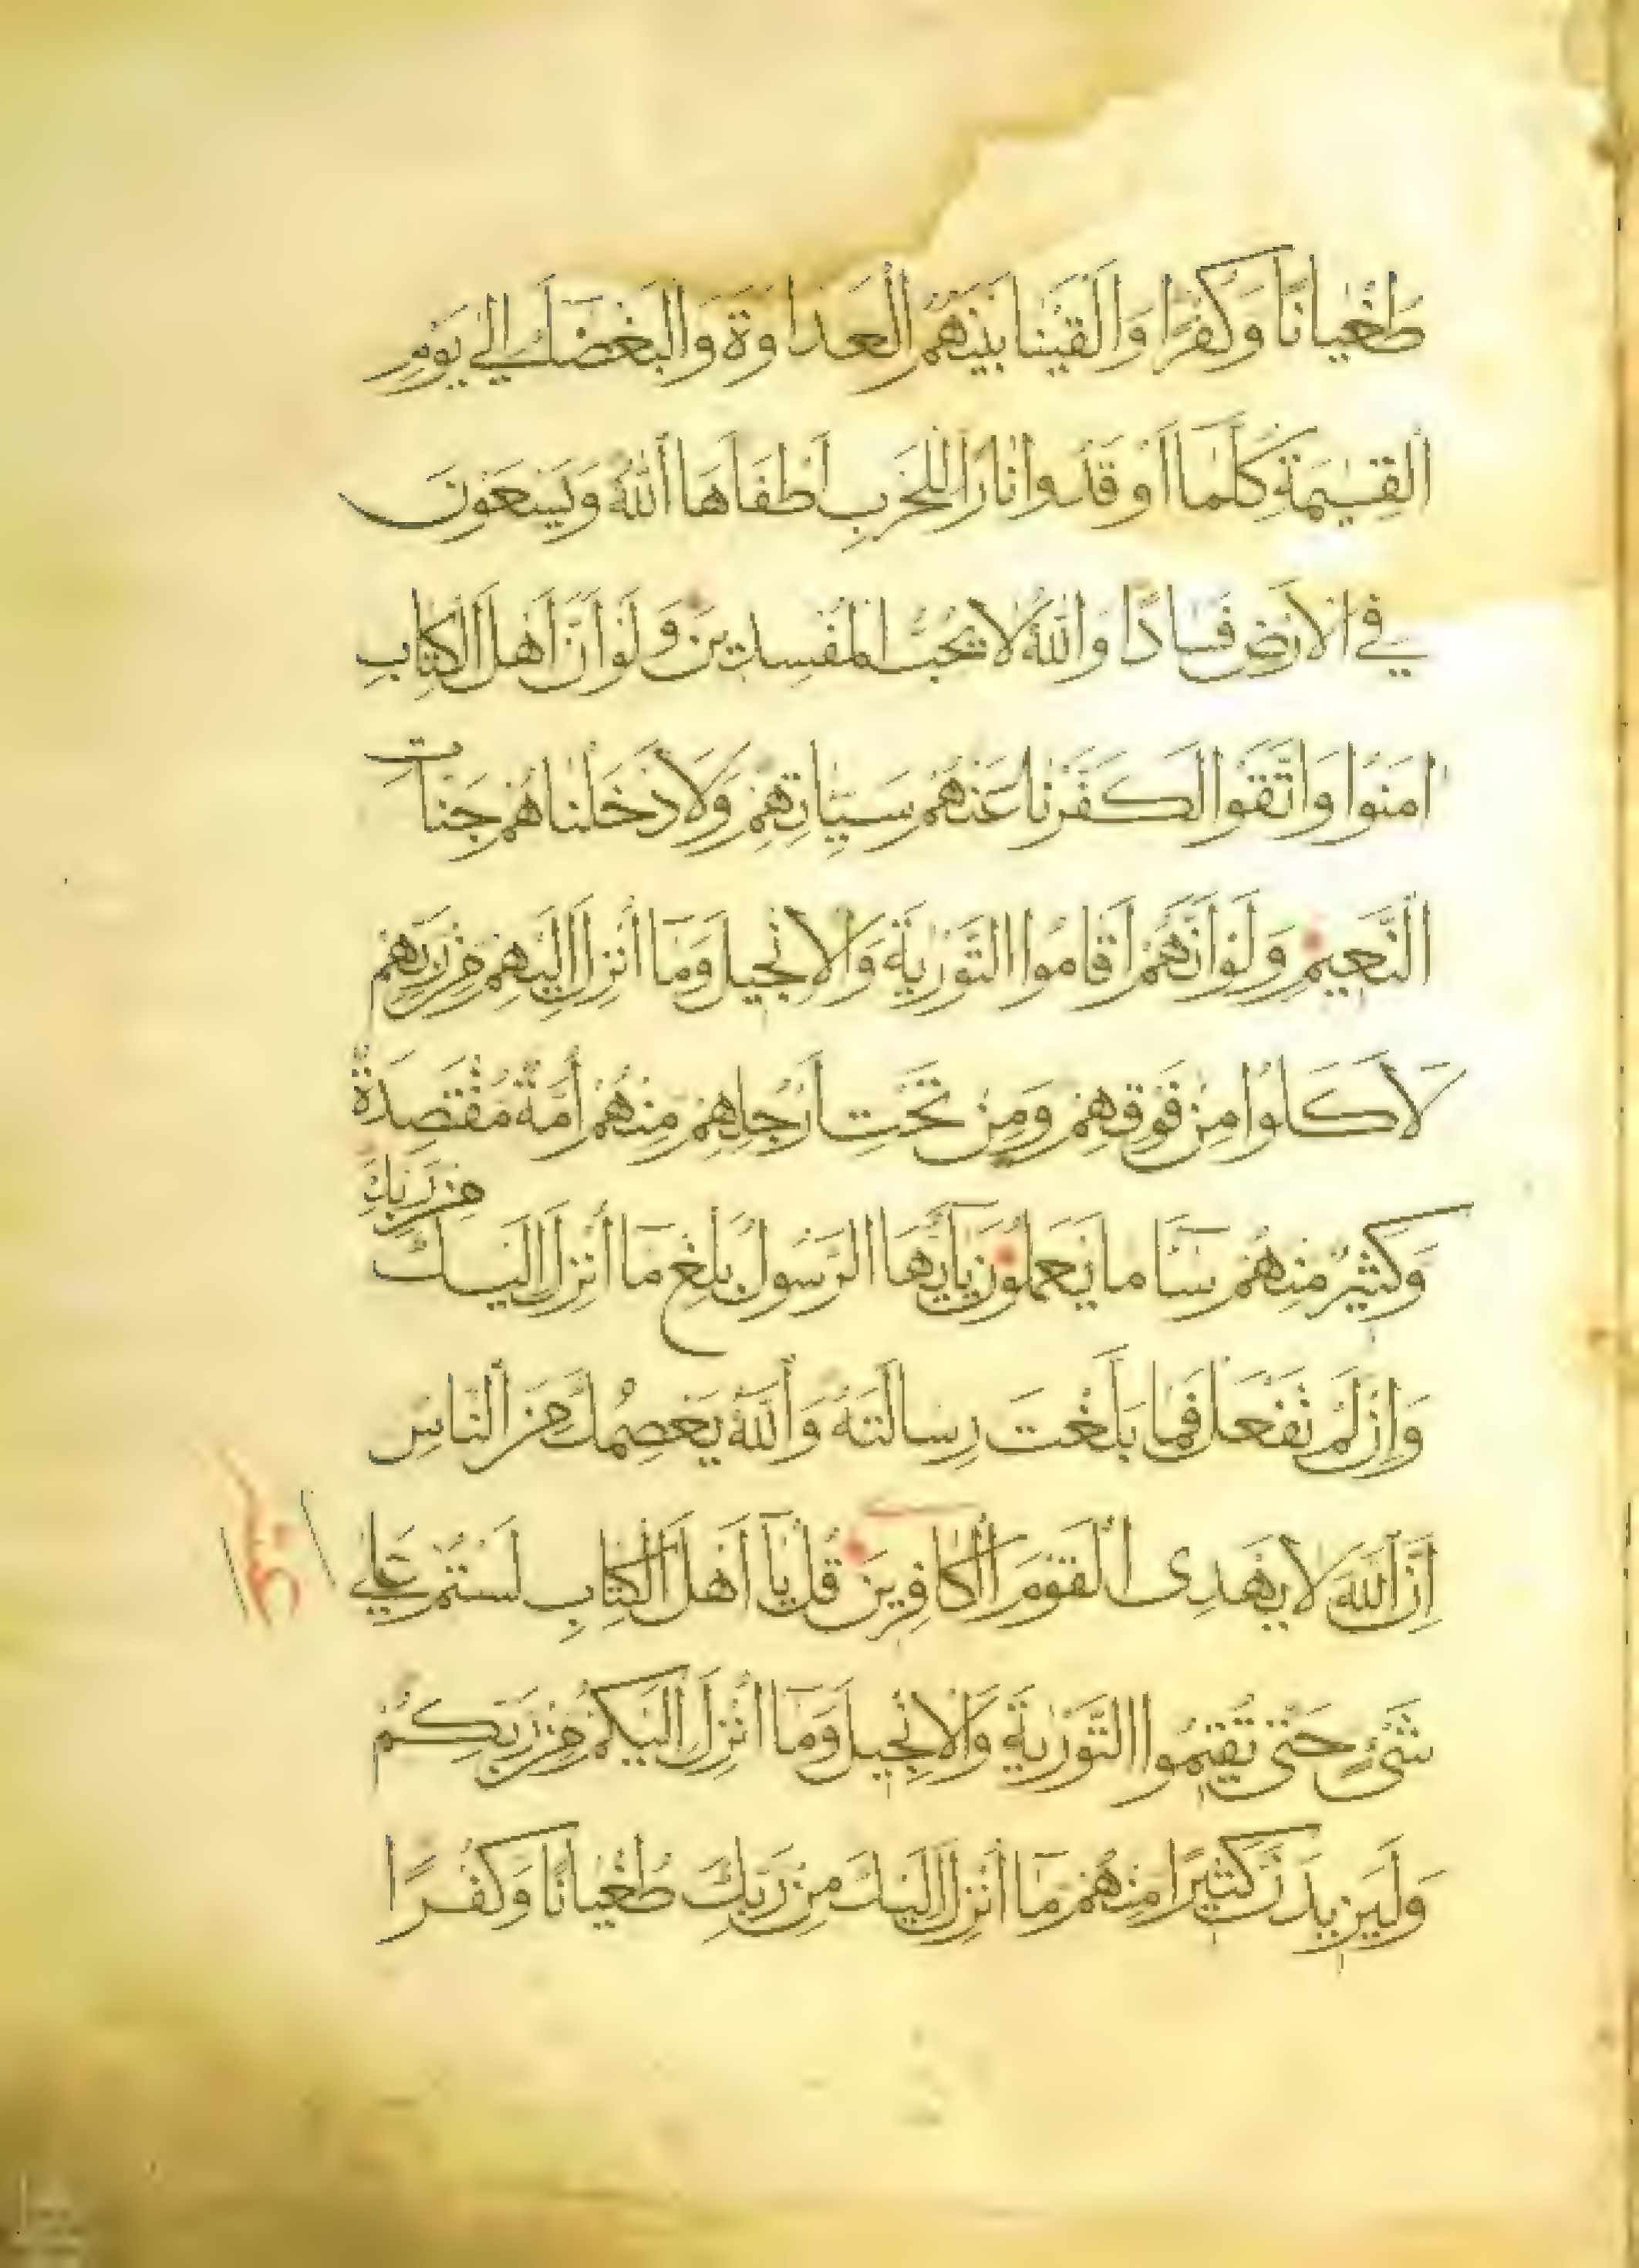 طُغْيَانًا وَكُفْرًا وَأَلْقَيْنَا بَيْنَهُمُ الْعَدَاوَةَ وَالْبَغْضَاءَ إِلَى يَوْمِ
الْقِيٰمَةِ كُلَّمَا أَوْقَدُوا نَارًا لِلْحَرْبِ أَطْفَأَهَا اللّٰهُ وَيَسْعَوْنَ
فِي الْأَرْضِ فَسَادًا وَاللّٰهُ لَا يُحِبُّ الْمُفْسِدِينَ وَلَوْ أَنَّ أَهْلَ الْكِتَابِ
اٰمَنُوا وَاتَّقَوْا لَكَفَّرْنَا عَنْهُمْ سَيِّئَاتِهِمْ وَلَأَدْخَلْنَاهُمْ جَنَّاتِ
النَّعِيمِ وَلَوْ أَنَّهُمْ أَقَامُوا التَّوْرٰيةَ وَالْإِنْجِيلَ وَمَا أُنْزِلَ إِلَيْهِمْ مِنْ رَبِّهِمْ
لَأَكَلُوا مِنْ فَوْقِهِمْ وَمِنْ تَحْتِ أَرْجُلِهِمْ مِنْهُمْ أُمَّةٌ مُقْتَصِدَةٌ
وَكَثِيرٌ مِنْهُمْ سَآءَ مَا يَعْمَلُونَ يَآأَيُّهَا الرَّسُولُ بَلِّغْ مَا أُنْزِلَ إِلَيْكَ مِنْ رَبِّكَ
وَإِنْ لَمْ تَفْعَلْ فَمَا بَلَّغْتَ رِسَالَتَهُ وَاللّٰهُ يَعْصِمُكَ مِنَ النَّاسِ
إِنَّ اللّٰهَ لَا يَهْدِى الْقَوْمَ الْكَافِرِينَ قُلْ يَآ أَهْلَ الْكِتَابِ لَسْتُمْ عَلٰى
شَىْءٍ حَتّٰى تُقِيمُوا التَّوْرٰيةَ وَالْإِنْجِيلَ وَمَآ أُنْزِلَ إِلَيْكُمْ مِنْ رَبِّكُمْ
وَلَيَزِيدَنَّ كَثِيرًا مِنْهُمْ مَآ أُنْزِلَ إِلَيْكَ مِنْ رَبِّكَ طُغْيَانًا وَكُفْرًا